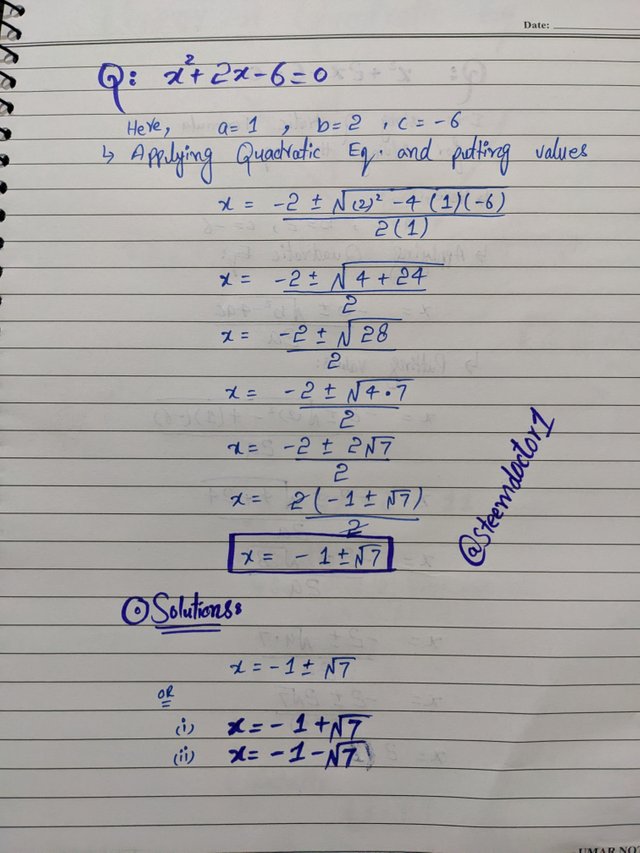 Date:
Q: x² + 2x - 6 = 0
Here, a = 1 , b = 2 , c = -6
↳ Applying Quadratic Eq. and putting values
x = -2 ± √(2)² - 4 (1)(-6) / 2(1)
x = -2 ± √4 + 24 / 2
x = -2 ± √28 / 2
x = -2 ± √4·7 / 2
x = -2 ± 2√7 / 2
x = 2(-1 ± √7) / 2
x = -1 ± √7
@steemdoctor1
Solutions:
x = -1 ± √7
OR
(i) x = -1 + √7
(ii) x = -1 - √7
UMAR NO